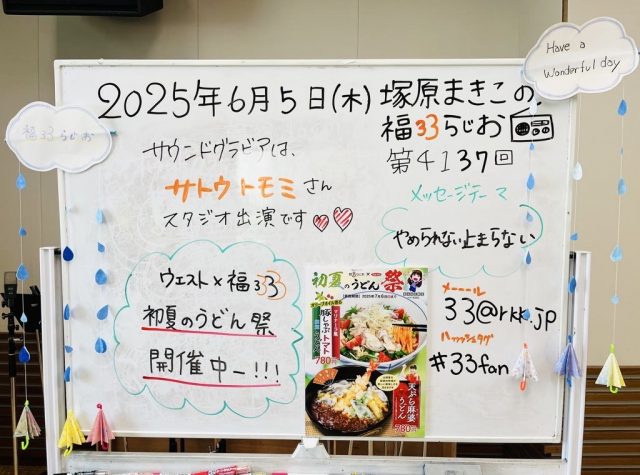 Have a
Wonderful day
2025年6月5日(木)塚原まきこの
福33らじお
第4137回
福33らじお
サウンドグラビアは、
サトウトモミさん
スタジオ出演です
メッセージテーマ
やめられない止まらない
ウエスト×福33
初夏のうどん祭
開催中ー!!!
初夏のうどん祭
豚しゃぶトマト
780円
天ぷら麻婆
うどん
780円
メーール
33@rkk.jp
ハッシュタグ
#33fan